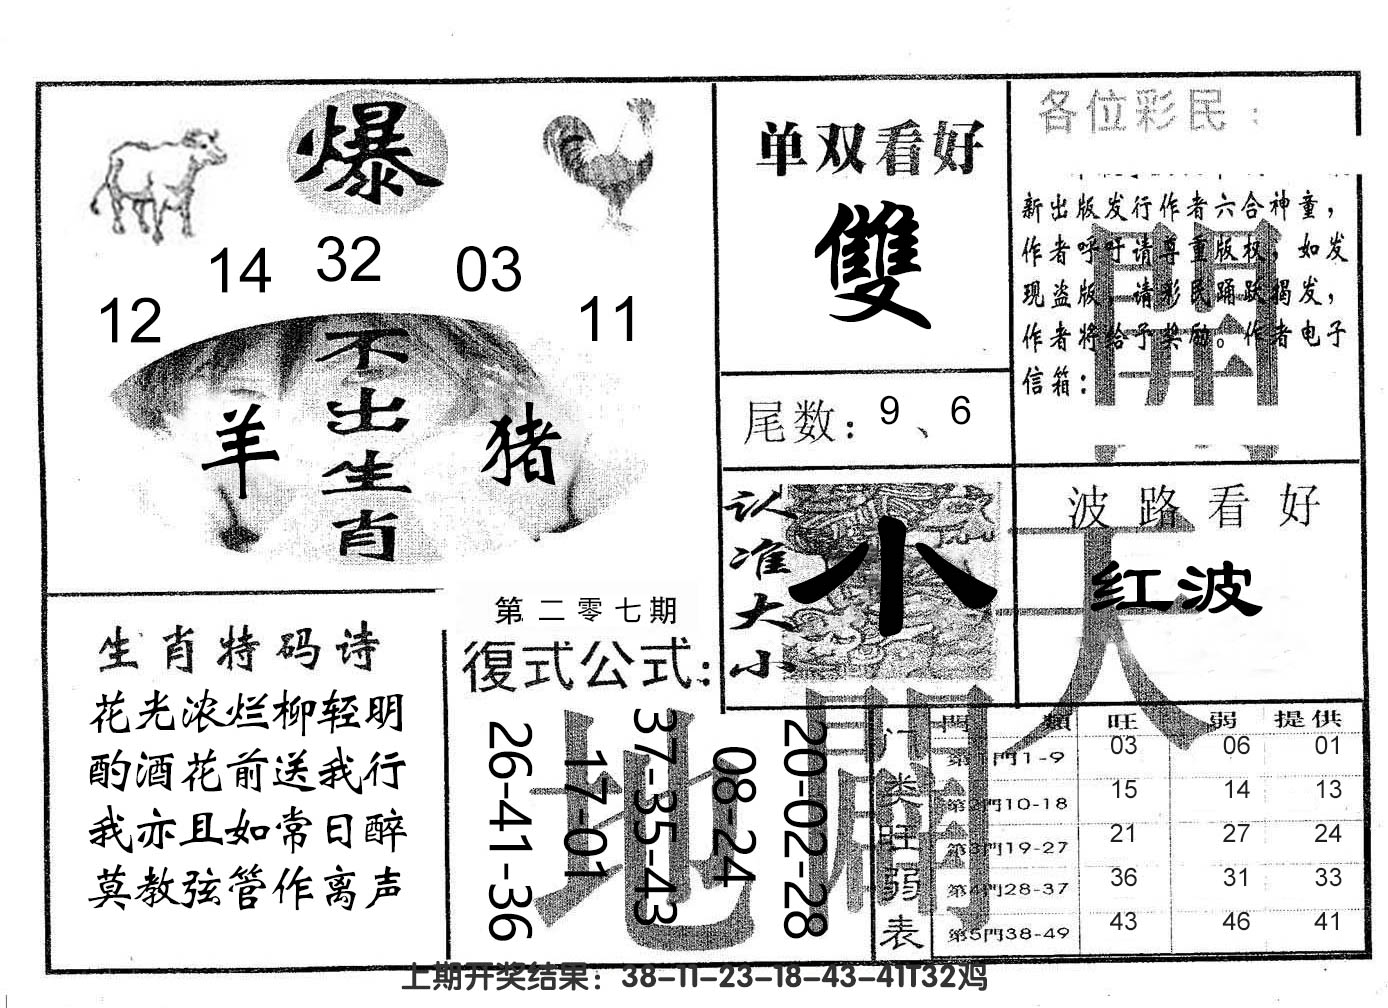 爆
14 32 03
12 11
不出生肖
羊 猪
单双看好
雙
尾数：9、6
认准大小
小
各位彩民：
新出版发行作者六合神童，
作者呼吁请尊重版权，如发
现盗版，请彩民踊跃揭发，
作者将给予奖励。作者电子
信箱：
波路看好
红波
生肖特码诗
花光浓烂柳轻明
酌酒花前送我行
我亦且如常日醉
莫教弦管作离声
第二零七期
復式公式：
26-41-36
17-01
37-35-43
08-24
20-02-28
天
開
地
開
门类旺弱表
門 類 旺 弱 提供
第1門1-9 03 06 01
第2門10-18 15 14 13
第3門19-27 21 27 24
第4門28-37 36 31 33
第5門38-49 43 46 41
上期开奖结果：38-11-23-18-43-41T32鸡